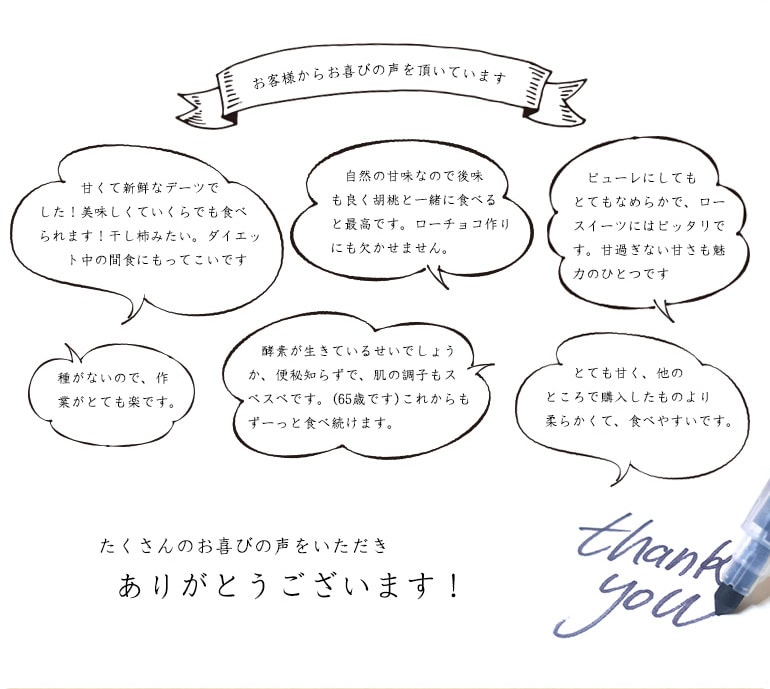 お客様からお喜びの声を頂いています
甘くて新鮮なデーツで
した！美味しくていくらでも食べ
られます！干し柿みたい。ダイエッ
ト中の間食にもってこいです
自然の甘味なので後味
も良く胡桃と一緒に食べる
と最高です。ローチョコ作り
にも欠かせません。
ピューレにしても
とてもなめらかで、ロー
スイーツにはピッタリで
す。甘過ぎない甘さも魅
力のひとつです
種がないので、作
業がとても楽です。
酵素が生きているせいでしょう
か、便秘知らずで、肌の調子もス
ベスベです。(65歳です)これからも
ずーっと食べ続けます。
とても甘く、他の
ところで購入したものより
柔らかくて、食べやすいです。
たくさんのお喜びの声をいただき
ありがとうございます！
thank
you